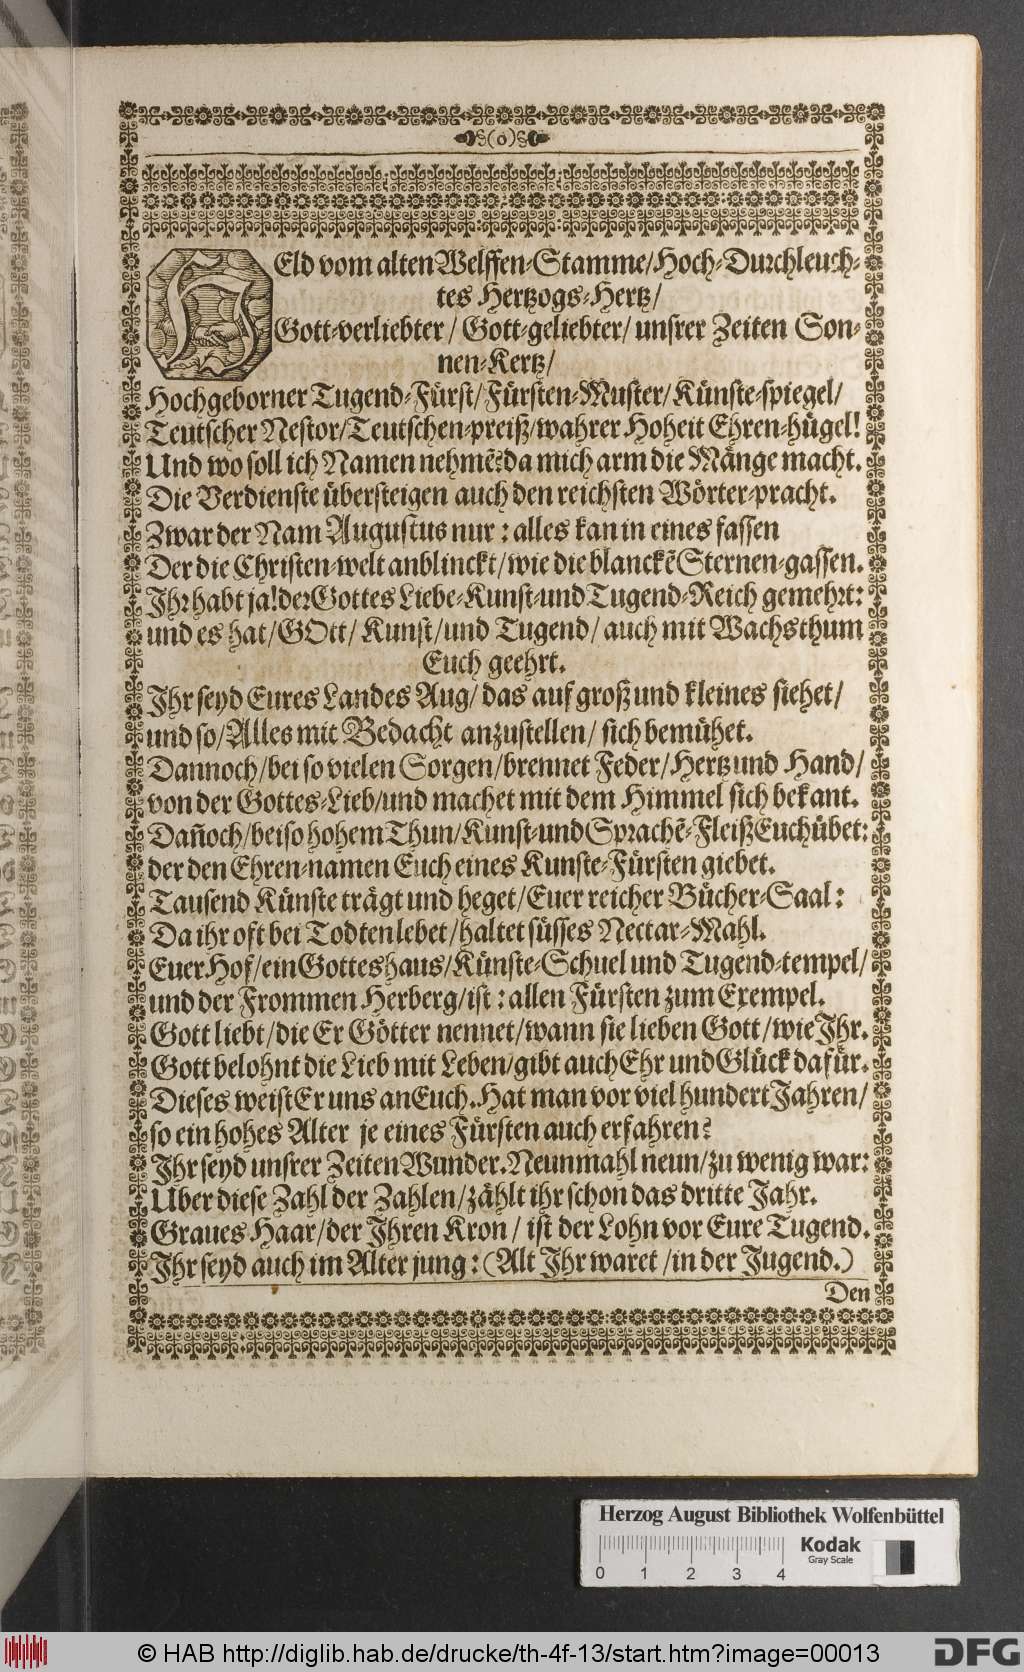 (o)
HEld vom alten Welffen-Stamme/Hoch-Durchleuch-
tes Hertzogs-Hertz/
Gott-verliebter / Gott-geliebter/ unsrer Zeiten Son-
nen-Kertz/
Hochgeborner Tugend-Fürst/Fürsten-Muster/Künste-spiegel/
Teutscher Nestor/Teutschen-preiß/wahrer Hoheit Ehren-hügel!
Und wo soll ich Namen nehmẽ?da mich arm die Mänge macht.
Die Verdienste übersteigen auch den reichsten Wörter-pracht.
Zwar der Nam Augustus nur : alles kan in eines fassen
Der die Christen-welt anblinckt/wie die blanckẽ Sternen-gassen.
Ihr habt ja!der Gottes Liebe-Kunst-und Tugend-Reich gemehrt:
und es hat/GOtt/ Kunst/und Tugend/ auch mit Wachsthum
Euch geehrt.
Ihr seyd Eures Landes Aug/ das auf groß und kleines siehet/
und so/Alles mit Bedacht anzustellen/ sich bemühet.
Dannoch/bei so vielen Sorgen/brennet Feder/Hertz und Hand/
von der Gottes-Lieb/und machet mit dem Himmel sich bekant.
Dañoch/bei so hohem Thun/Kunst-und Sprachẽ-Fleiß Euch übet:
der den Ehren-namen Euch eines Kunste-Fürsten giebet.
Tausend Künste trägt und heget/Euer reicher Bücher-Saal:
Da ihr oft bei Todten lebet/haltet süsses Nectar-Mahl.
Euer Hof/ein Gotteshaus/Künste-Schuel und Tugend-tempel/
und der Frommen Herberg/ist : allen Fürsten zum Exempel.
Gott liebt/die Er Götter nennet/wann sie lieben Gott/wie Ihr.
Gott belohnt die Lieb mit Leben/gibt auch Ehr und Glück dafür.
Dieses weist Er uns an Euch. Hat man vor viel hundert Jahren/
so ein hohes Alter je eines Fürsten auch erfahren?
Ihr seyd unsrer Zeiten Wunder. Neunmahl neun/zu wenig war:
Uber diese Zahl der Zahlen/zählt ihr schon das dritte Jahr.
Graues Haar/der Ihren Kron / ist der Lohn vor Eure Tugend.
Ihr seyd auch im Alter jung : (Alt Ihr waret /in der Jugend.)
Den
Herzog August Bibliothek Wolfenbüttel
Kodak
Gray Scale
0 1 2 3 4
© HAB http://diglib.hab.de/drucke/th-4f-13/start.htm?image=00013
DFG